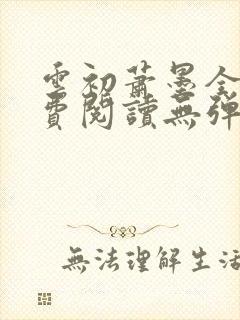 雲初蕭墨全
費閱讀無彈
無法理解生活